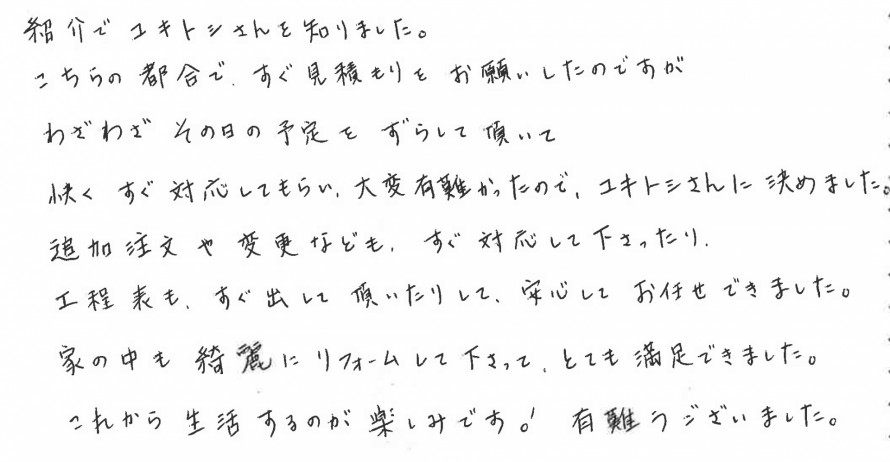 紹介でユキトシさんを知りました。
こちらの都合で、すぐ見積もりをお願いしたのですが
わざわざその日の予定をずらして頂いて
快くすぐ対応してもらい、大変有難かったので、ユキトシさんに決めました。
追加注文や変更なども、すぐ対応して下さったり、
工程表も、すぐ出して頂いたりして、安心してお任せできました。
家の中も綺麗にリフォームして下さって、とても満足できました。
これから生活するのが楽しみです。! 有難うございました。